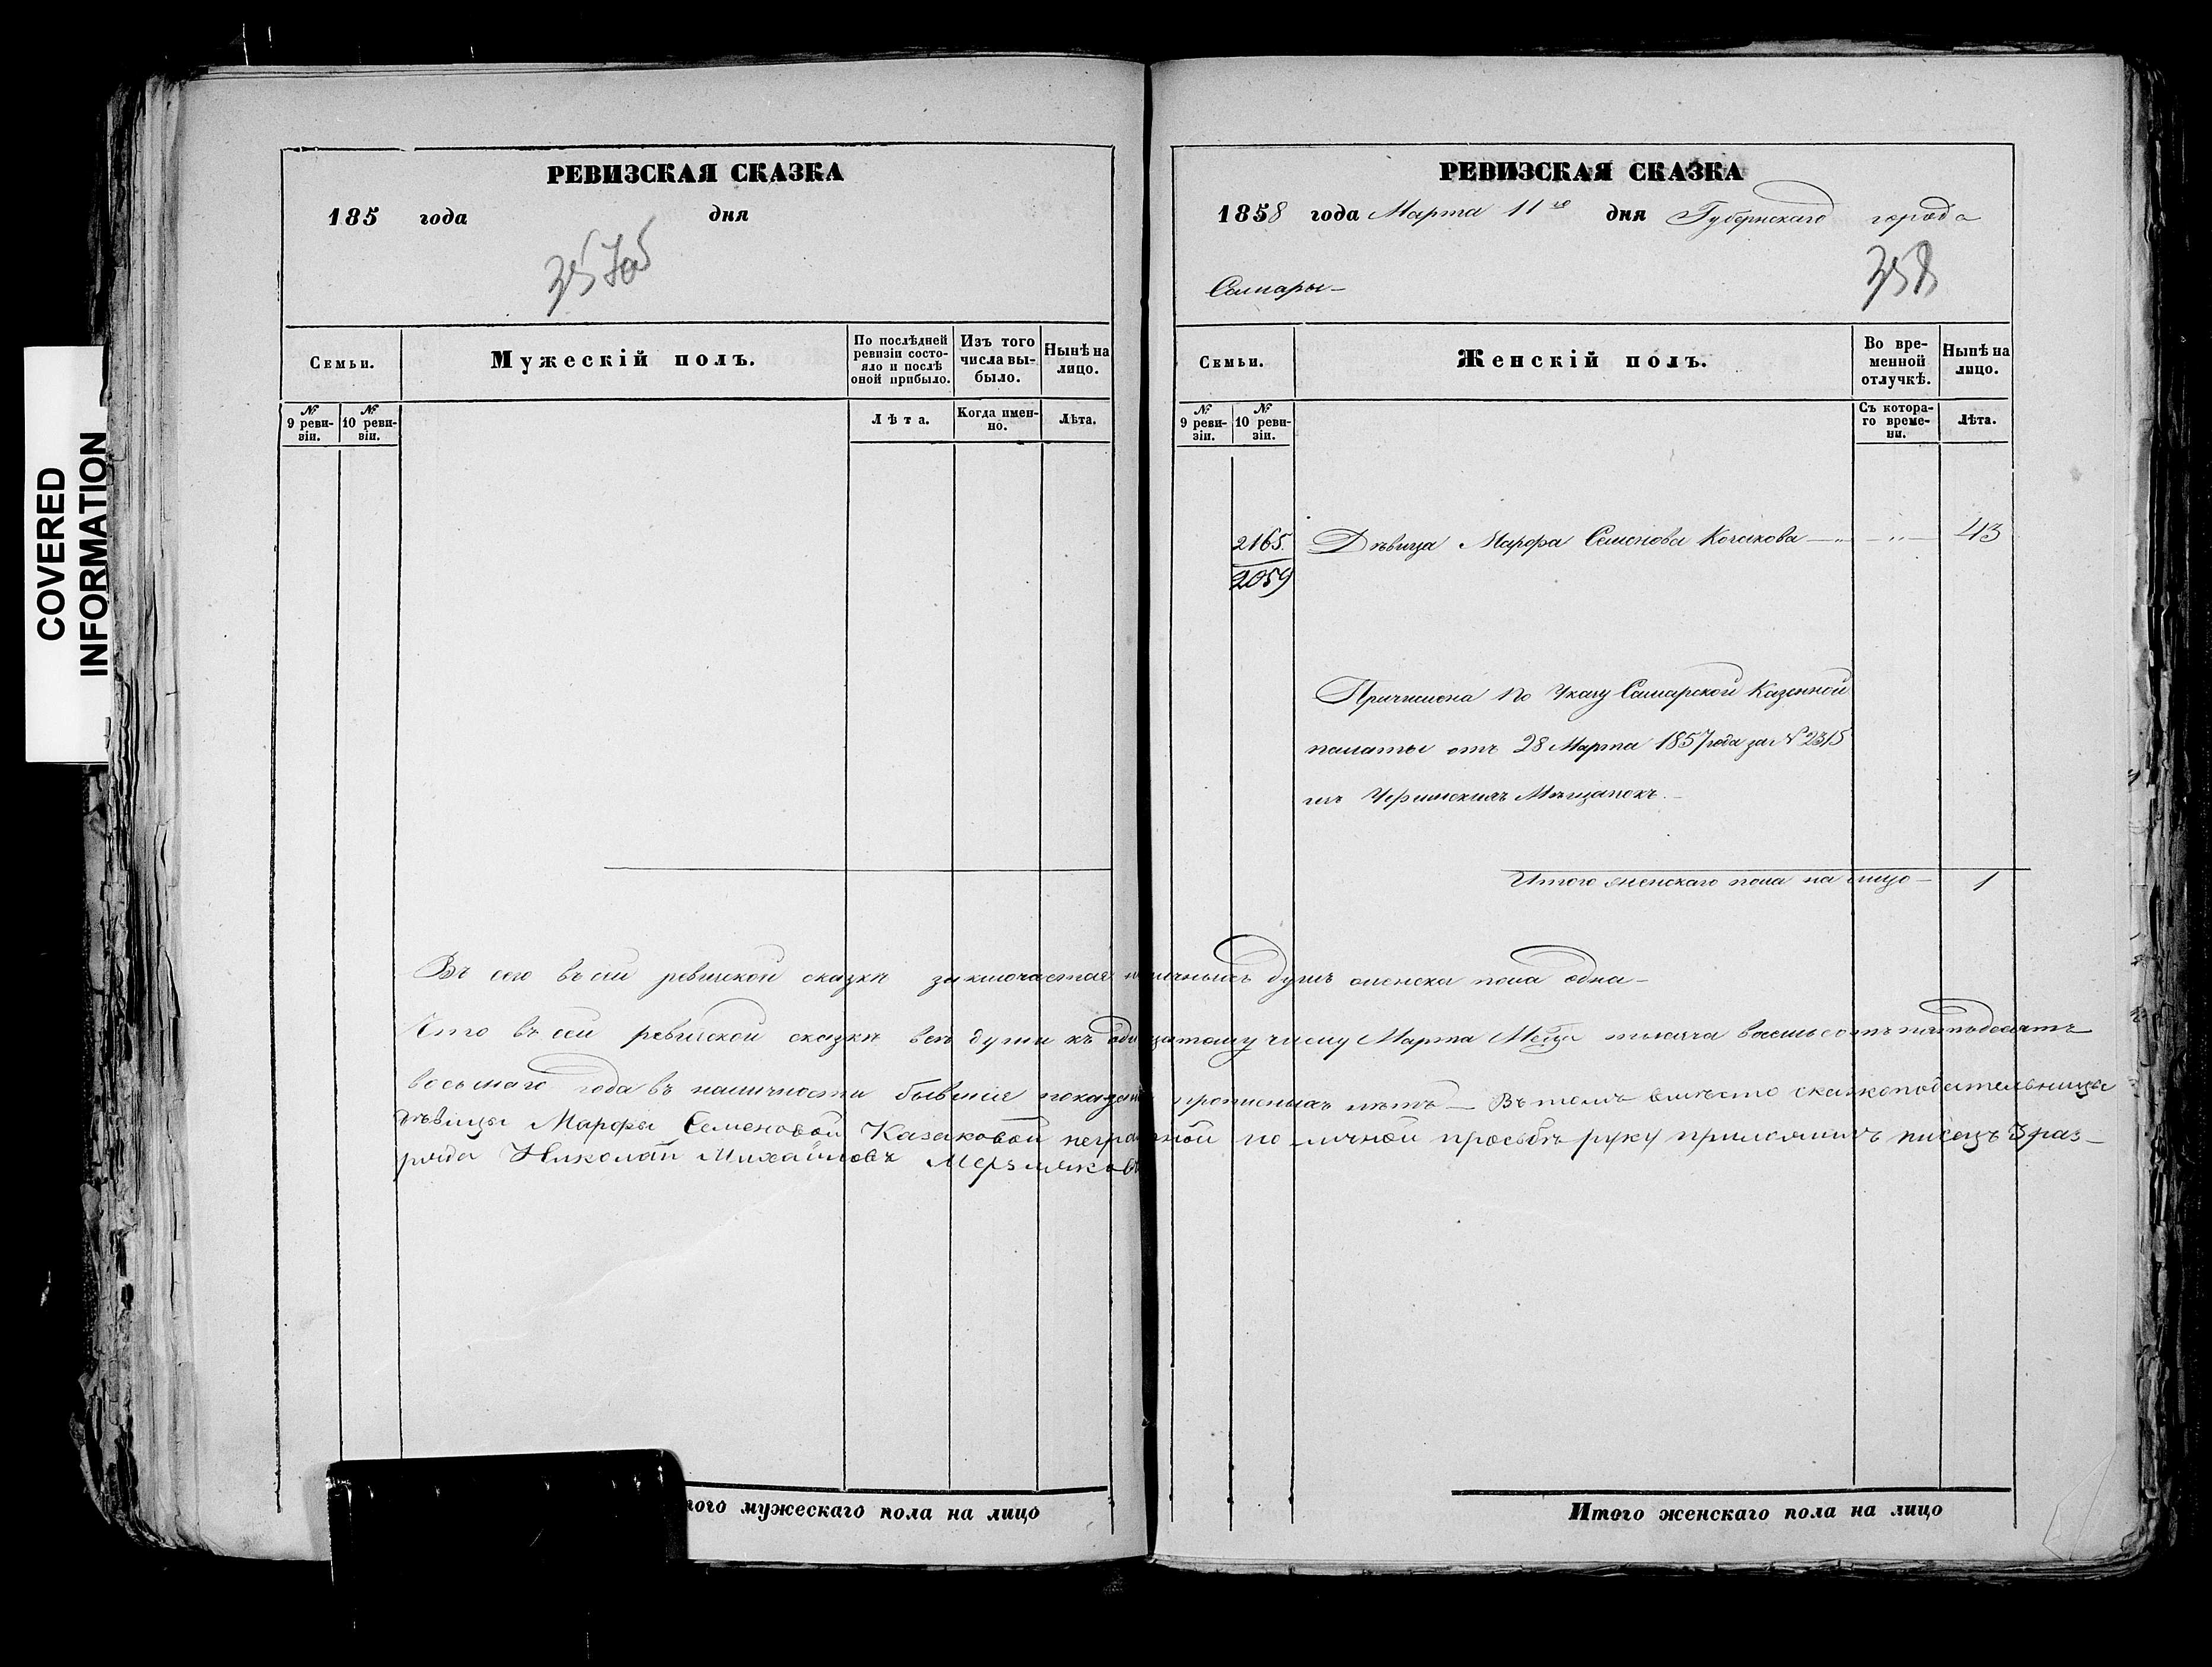 COVERED
INFORMATION
РЕВИЗСКАЯ СКАЗКА
185 года дня
357об
Семьи.
Мужескій полъ.
По послѣдней
ревизіи состо-
яло и послѣ
оной прибыло.
Изъ того
числа вы-
было.
Нынѣ на
лицо.
№
9 реви-
зіи.
№
10 реви-
зіи.
Лѣта.
Когда имен-
но.
Лѣта.
РЕВИЗСКАЯ СКАЗКА
1858 года Марта 11го дня Губернскаго города
Самары
358
Семьи.
Женскій полъ.
Во вре-
менной
отлучкѣ.
Нынѣ на
лицо.
№
9 реви-
зіи.
№
10 реви-
зіи.
Съ котора-
го време-
ни.
Лѣта.
2165. Дѣвица Марфа Семенова Козакова — „ — „ — 43
2059
Причислена по Указу Самарской Казенной
палаты отъ 28 Марта 1857 года за № 2315
изъ Мѣщанокъ.—
Итого женскаго пола на лицо — 1
Въ сей ревизской сказкѣ заключается наличныхъ душъ женска пола одна —
Что въ сей ревизской сказкѣ всѣ души къ одинадцатому числу Марта Мѣсяца тысяча восемьсотъ пятьдесятъ
восьмаго года въ наличности бывшіе показаны прописныхъ нѣтъ — Въ томъ вмѣсто сказкоподательницы
дѣвицы Марфы Семеновой Казаковой неграмотной по личной просьбѣ руку приложилъ писецъ 3 раз-
ряда Николай Михайловъ Мерзляковъ
того мужескаго пола на лицо
Итого женскаго пола на лицо